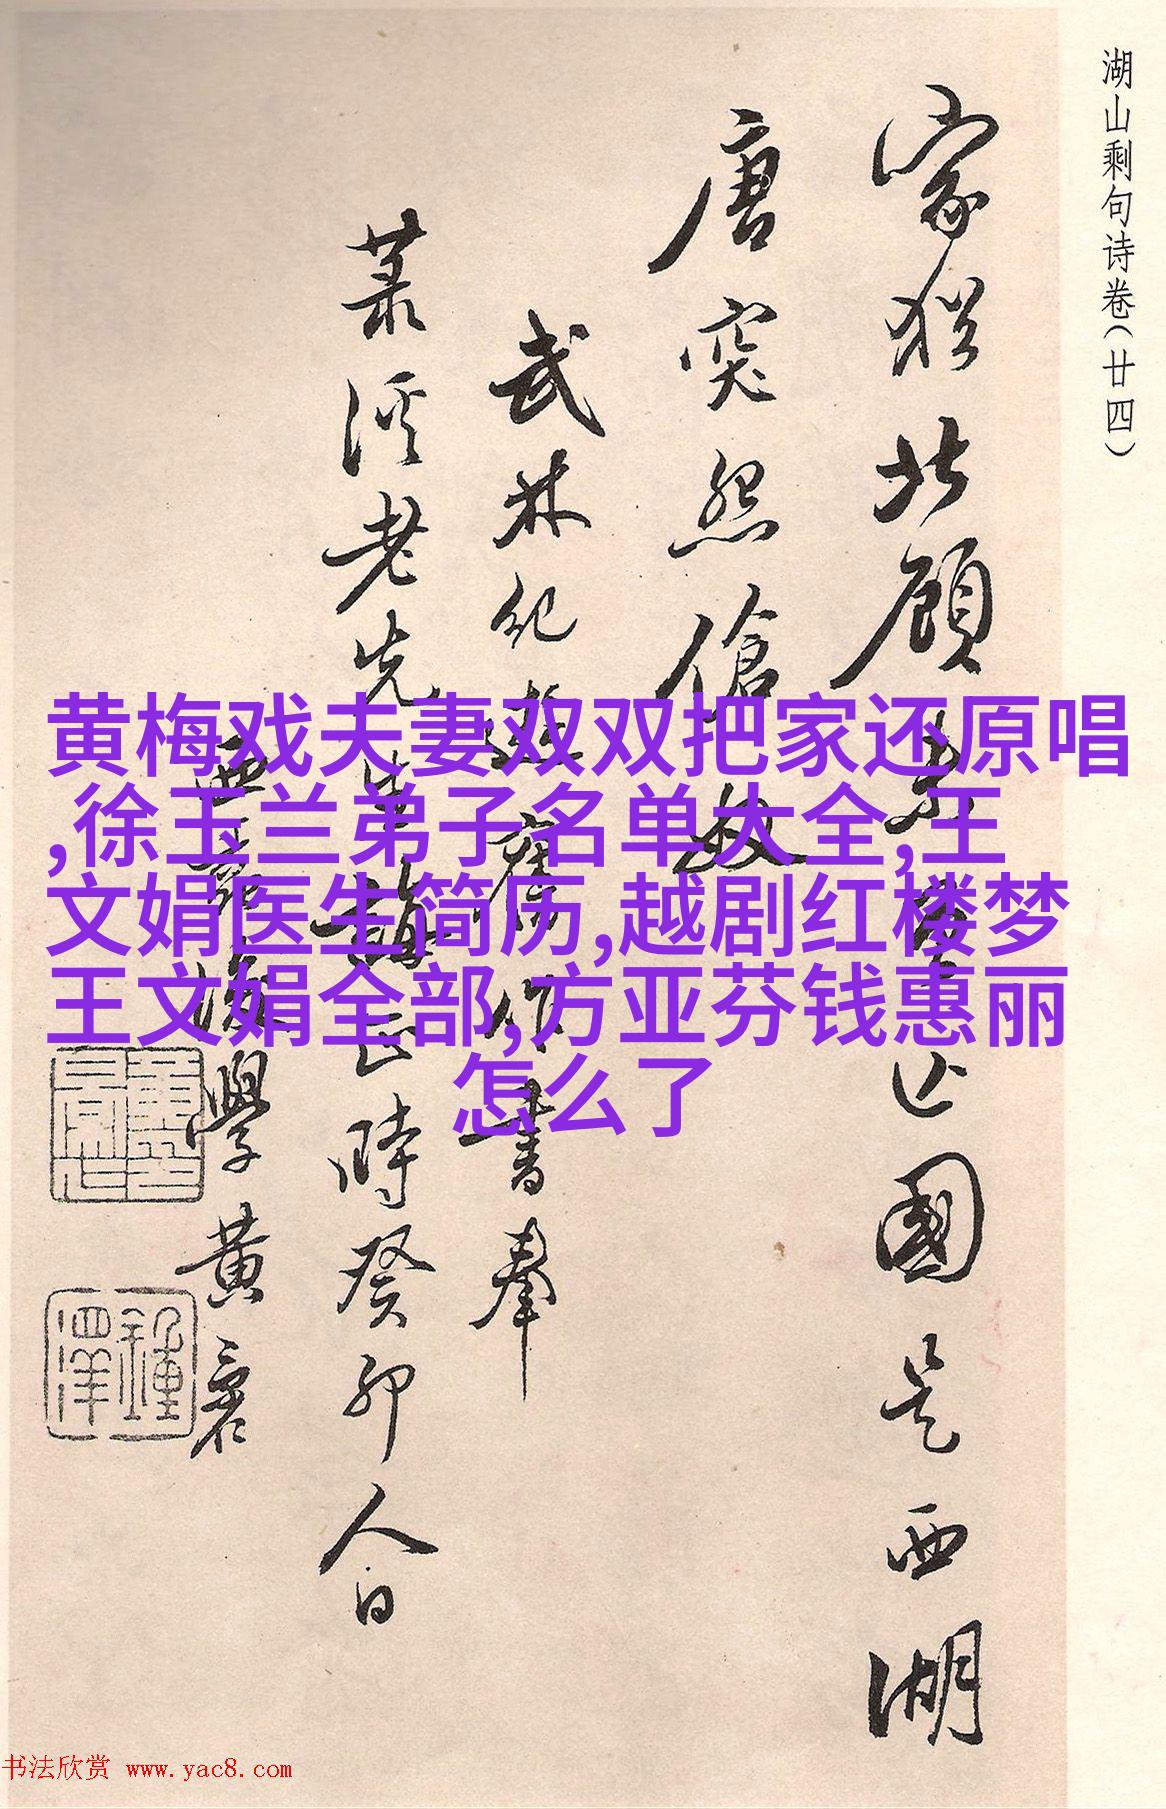 湖山剩句诗卷(廿四)
家猶北顧
亡國是西湖
唐突怨傖奴
武林紀遊舊作書奉
溪老先生
正時癸卯人日
學黄
黄梅戏夫妻双双把家还原唱
,徐玉兰弟子名单大全,王
文娟医生简历,越剧红楼梦
王文娟全部,方亚芬钱惠丽
怎么了
鍾
澤
书法欣赏 www.yac8.com